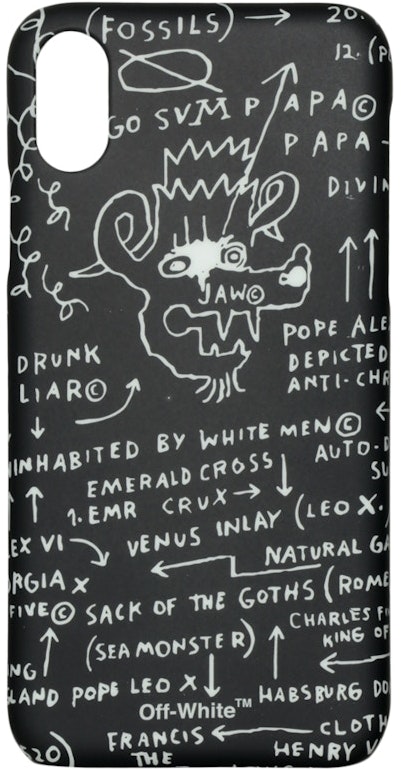 (FOSSILS) → 20.
12. (P
GO SVM PAPA©
PAPA -
DIVIN
JAW©
POPE ALE
DRUNK
DEPICTED
LIAR©
ANTI-CHR
INHABITED BY WHITE MEN©
AUTO-D
EMERALD CROSS
SU
1. EMR CRUX →
VENUS INLAY (LEO X.
EX VI
NATURAL GA
RGIA X
FIVE© SACK OF THE GOTHS (ROME
CHARLES FI
(SEA MONSTER)
KING OF
NG
LAND POPE LEO X
HABSBURG DO
Off-White™
FRANCIS ← CLOTH
20)
THE
HENRY V